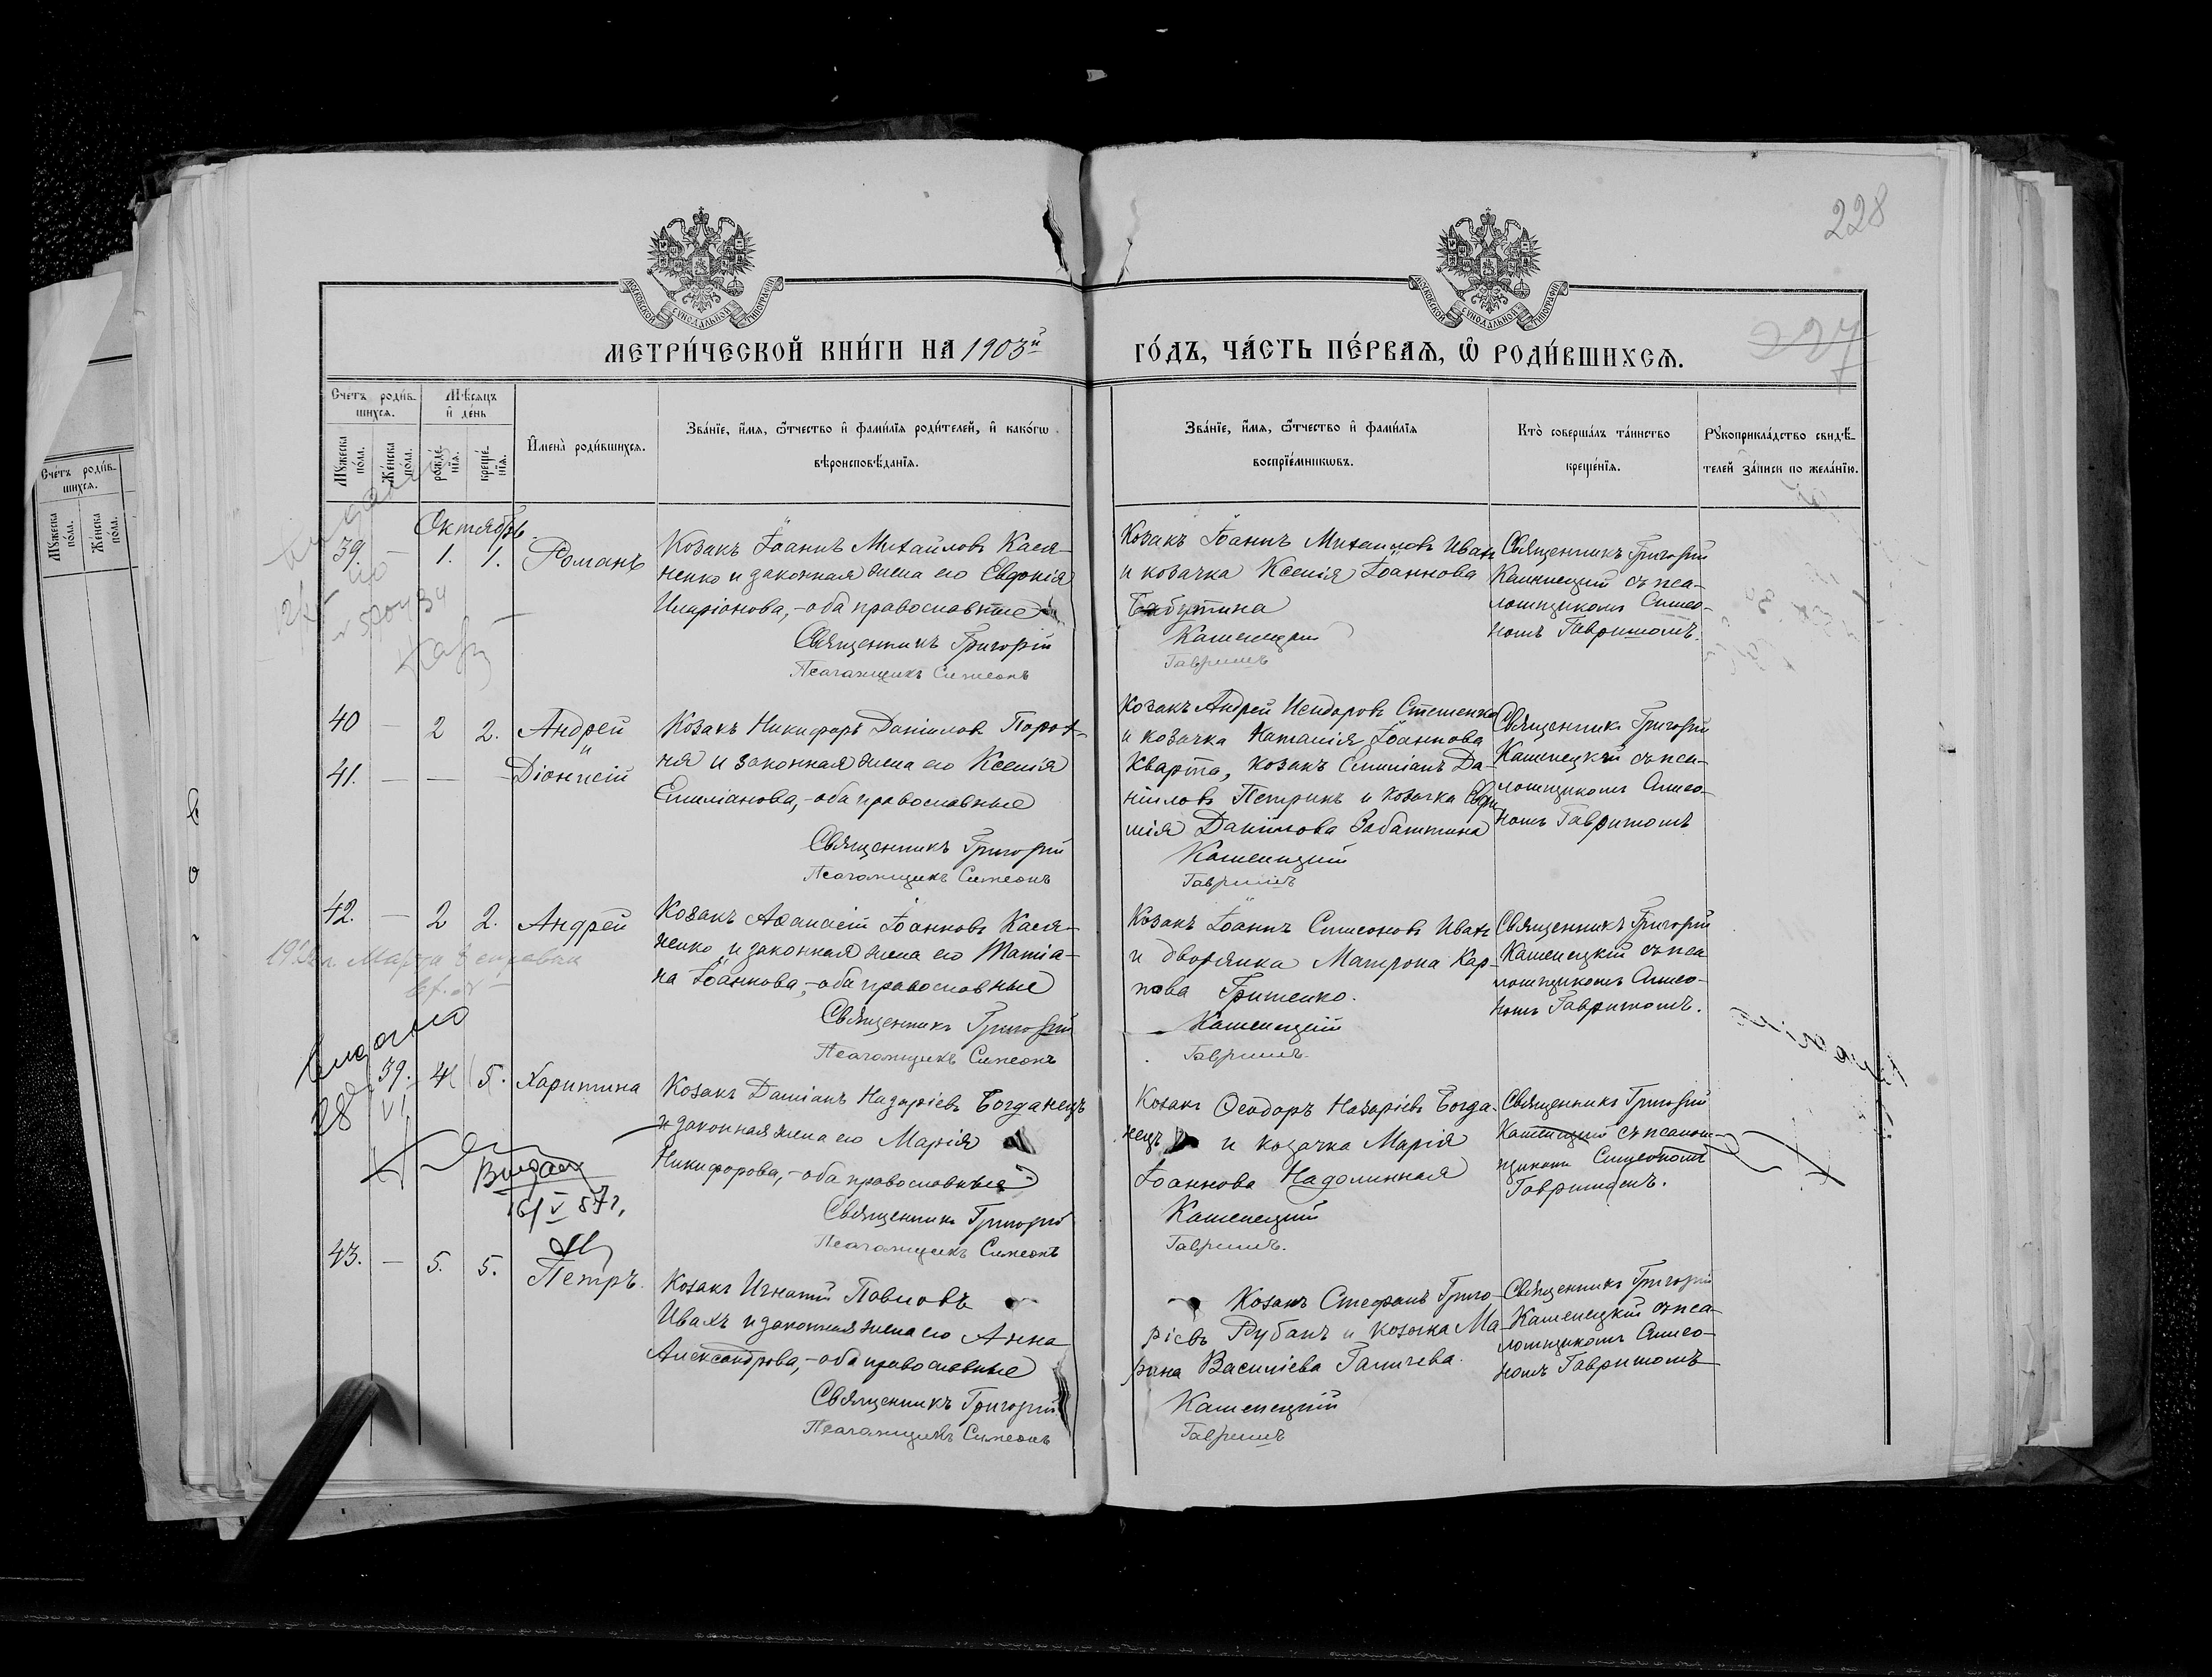 228
МОСКОВСКОЙ СУНОДАЛЬНОЙ ТИПОГРАФІИ
МОСКОВСКОЙ СУНОДАЛЬНОЙ ТИПОГРАФІИ
227
МЕТРИ́ЧЕСКОЙ КНИ́ГИ НА 1903й
ГО́ДЪ, ЧА́СТЬ ПЕ́РВАѦ, Ѽ РОДИ́ВШИХСѦ.
Сче́тъ роди́в-
шихсѧ.
Мѣ́сѧцъ
и҆ де́нь
Мꙋ́жеска по́ла.
Же́нска по́ла.
рожде́-
нїѧ.
креще́-
нїѧ.
И҆мена̀ роди́вшихсѧ.
Зва́нїе, и҆́мѧ, ѻ҆́тчество и҆ фами́лїѧ роди́телей, и҆ како́гѡ
вѣроисповѣ́данїѧ.
Зва́нїе, и҆́мѧ, ѻ҆́тчество и҆ фами́лїѧ
воспрїе́мникѡвъ.
Кто̀ соверша́лъ та́инство
креще́нїѧ.
Рꙋкоприкла́дство свидѣ́-
телей за́писи по жела́нїю.
Сче́тъ роди́в-
шихсѧ.
Мꙋ́жеска по́ла.
Же́нска по́ла.
Октябрь.
39. — 1. 1. Романъ
Козакъ Іоаннъ Михаиловъ Кася-
ненко и законная жена его Евдокія
Иларіонова, - оба православные
Священникъ Григорій
Псаломщикъ Симеонъ
Козакъ Іоаннъ Михаиловъ Ивахъ
и козачка Ксенія Іоаннова
Бабутина
Каменецкій
Гавришъ
Священникъ Григорій
Каменецкій съ пса-
ломщикомъ Симео-
номъ Гавришомъ.
40 — 2 2. Андрей
и
41. — — — Діонисій
Козакъ Никифоръ Даніиловъ Порот-
ня и законная жена его Ксенія
Емиліанова, - оба православные
Священникъ Григорій
Псаломщикъ Симеонъ
Козакъ Андрей Исидоровъ Стешенко
и козачка Наталія Іоаннова
Кварта, козакъ Емиліанъ Да-
ніиловъ Петрикъ и козачка Евфи
мія Даніилова Забаштина
Каменецкій
Гавришъ
Священникъ Григорій
Каменецкій съ пса-
ломщикомъ Симео-
номъ Гавришомъ
42. — 2 2. Андрей
Козакъ Аѳанасій Іоанновъ Кася-
ненко и законная жена его Татіа-
на Іоаннова, - оба православные
Священникъ Григорій
Псаломщикъ Симеонъ
Козакъ Іоаннъ Симеоновъ Ивахъ
и дворянка Матрона Кар-
пова Гриценко.
Каменецкій
Гавришъ.
Священникъ Григорій
Каменецкій съ пса
ломщикомъ Симео-
номъ Гавришомъ.
39. 4 5. Харитина
Козакъ Даміанъ Назаріевъ Богданецъ
и законная жена его Марія
Никифорова, - оба православные
Священникъ Григорій
Псаломщикъ Симеонъ
Козакъ Ѳеодоръ Назаріевъ Богда-
нецъ и козачка Марія
Іоаннова Надолинная
Каменецкій
Гавришъ.
Священникъ Григорій
Каменецкій съ псалом-
щикомъ Симеономъ
Гавришомъ.
43. — 5. 5. Петръ.
Козакъ Игнатій Павловъ
Ивахъ и законная жена его Анна
Александрова, - оба православные
Священникъ Григорій
Псаломщикъ Симеонъ
Козакъ Стефанъ Григо-
ріевъ Рубанъ и козачка Ма-
рина Василіева Галичева.
Каменецкій
Гавришъ
Священникъ Григорій
Каменецкій съ пса-
ломщикомъ Симео-
номъ Гавришомъ